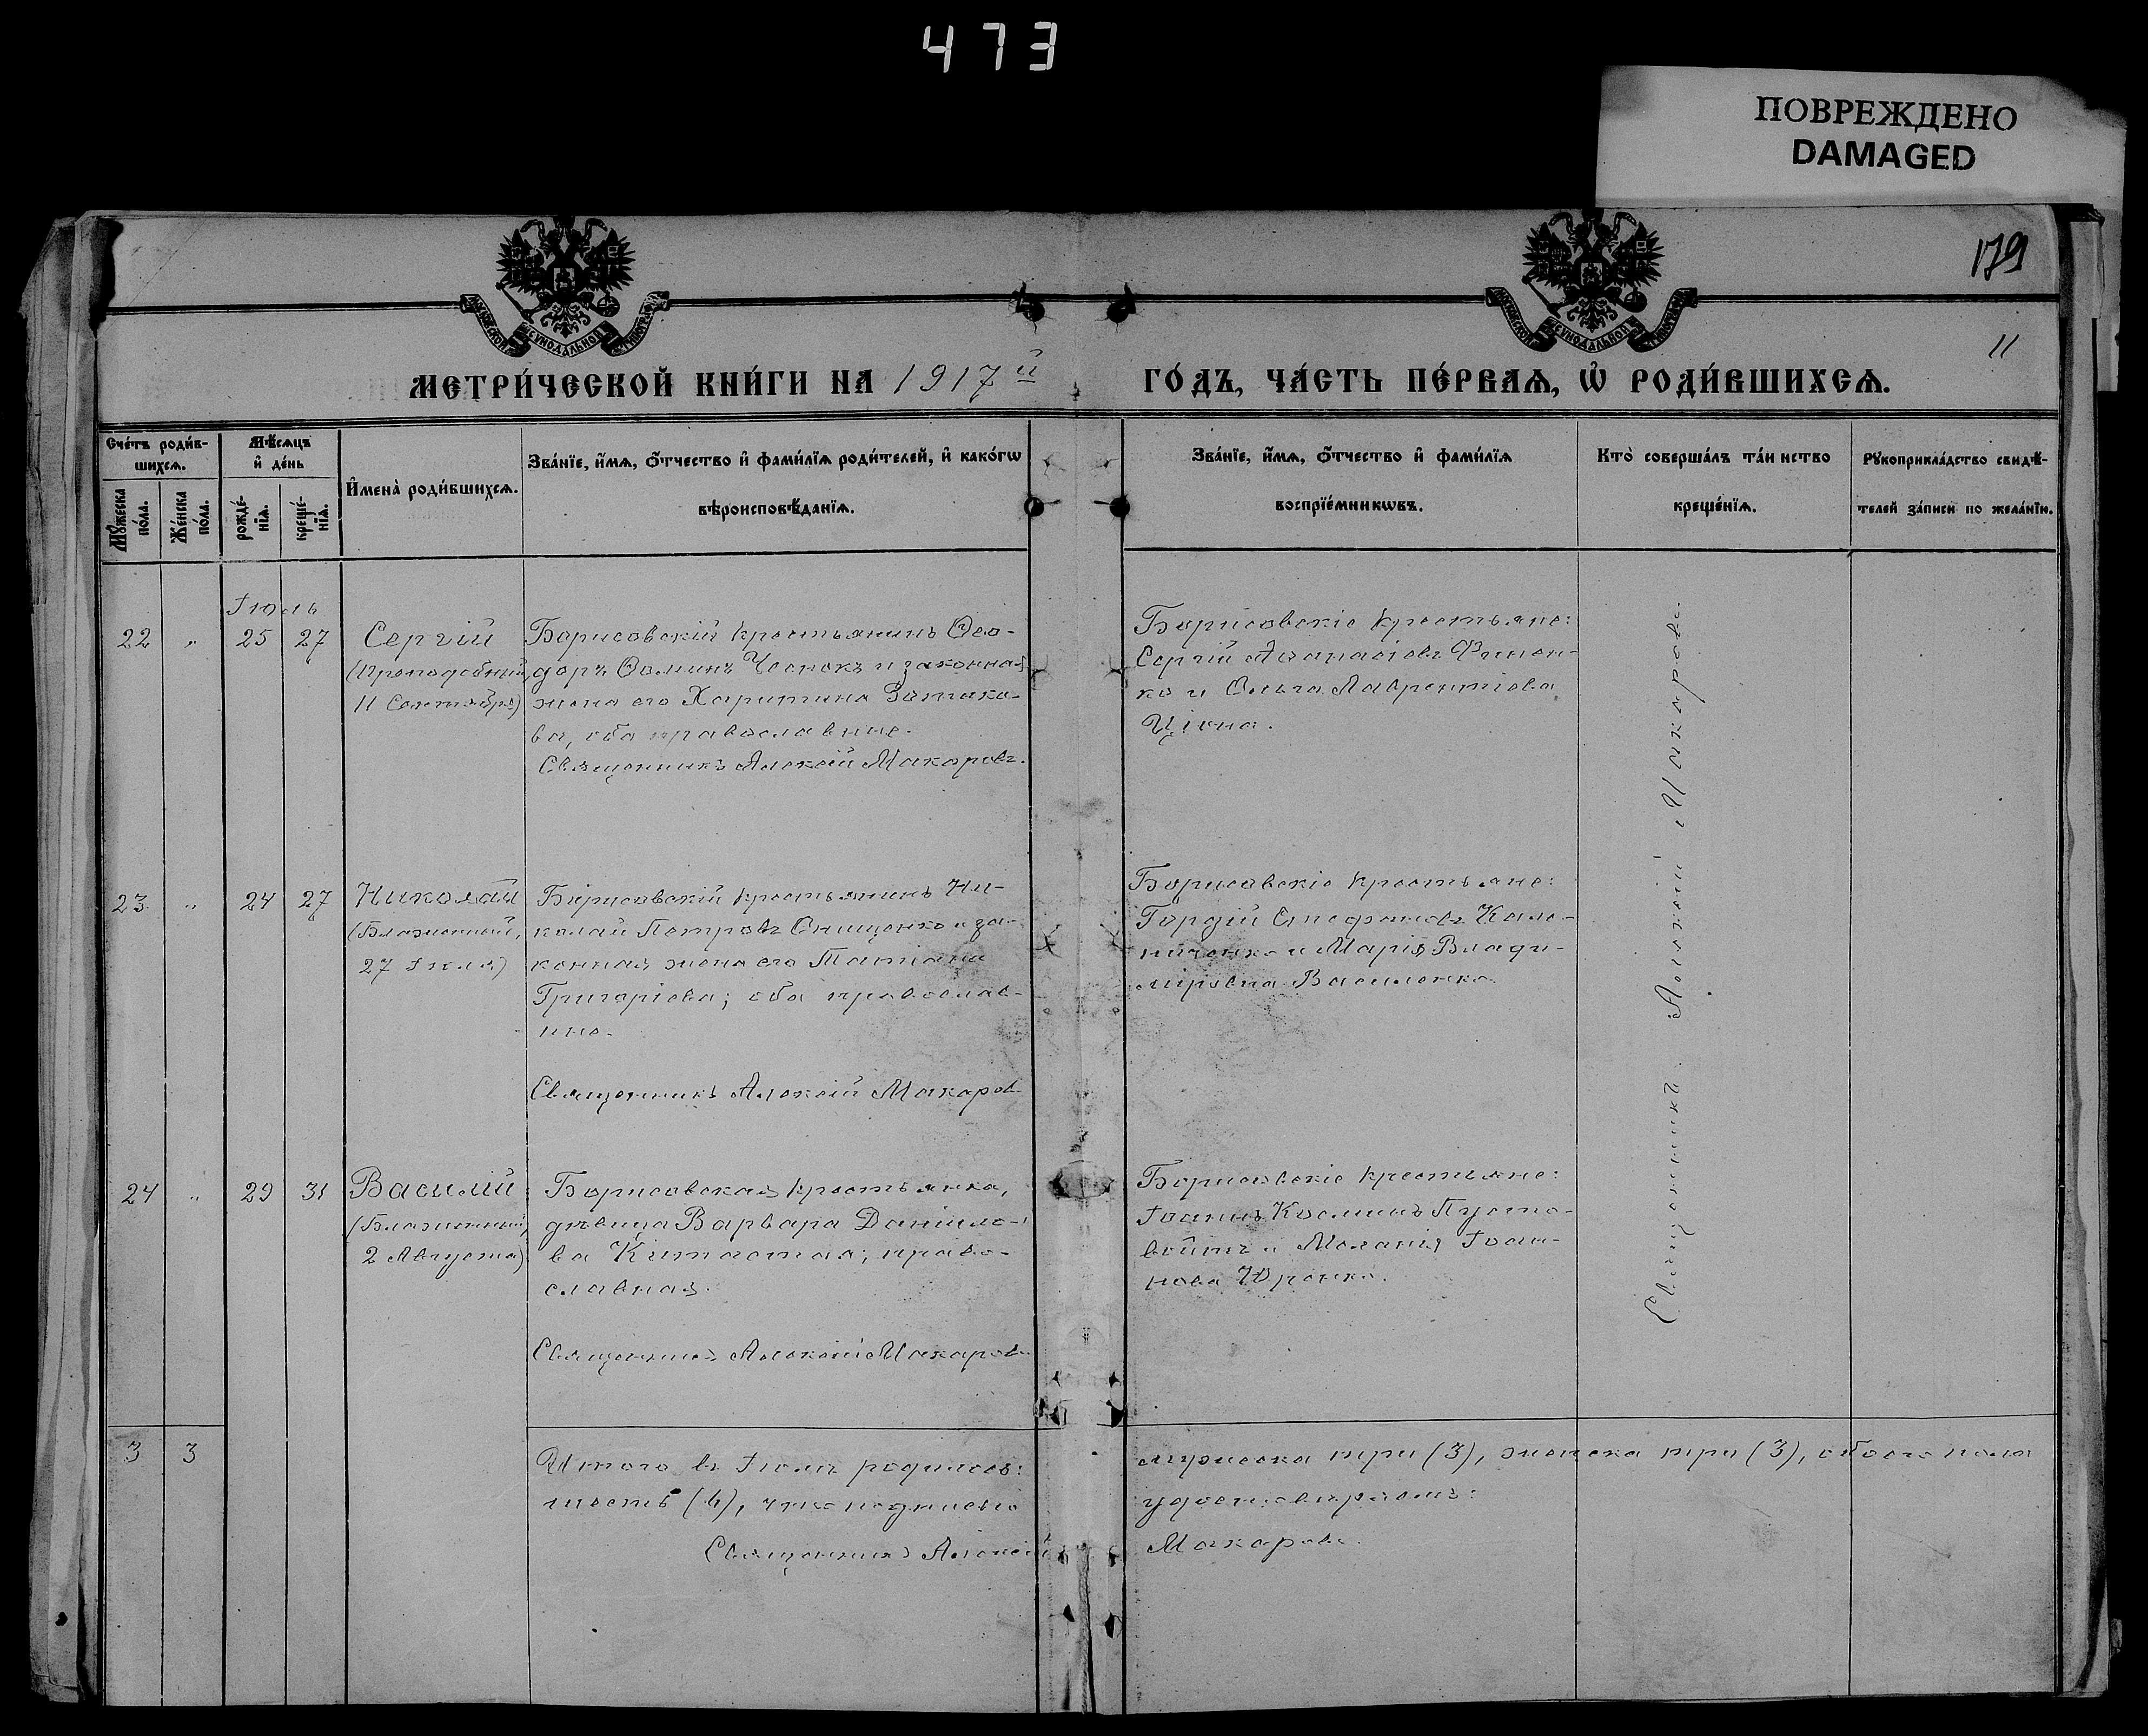 473
ПОВРЕЖДЕНО
DAMAGED
179
11
МЕТРИ́ЧЕСКОЙ КНИ́ГИ НА 1917й ГО́ДЪ, ЧА́СТЬ ПЕ́РВАѦ, Ѡ҆ РОДИ́ВШИХСѦ.
Сче́тъ роди́в-
шихсѧ.
Мꙋ́жеска по́ла.
Же́нска по́ла.
Мѣ́сѧцъ
и҆ де́нь
рожде́-
нїѧ.
креще́-
нїѧ.
И҆мена̀ роди́вшихсѧ.
Зва́нїе, и҆́мѧ, ѻ҆́тчество и҆ фами́лїѧ роди́телей, и҆ како́гѡ
вѣроисповѣ́данїѧ.
Зва́нїе, и҆́мѧ, ѻ҆́тчество и҆ фами́лїѧ
воспрїе́мникѡвъ.
Кто̀ соверша́лъ та́инство
креще́нїѧ.
Рꙋкоприкла́дство свидѣ́-
телей за́писи по жела́нїю.
Іюль
22 " 25 27
Сергій
(Преподобный,
11 Сентября)
Борисовскій крестьянинъ Ѳео-
доръ Ѳоминъ Чеснокъ и законная
жена его Харитина
ва, оба православные.
Священникъ Алексій Макаровъ.
Борисовскіе крестьяне:
Сергій Аѳанасіевъ Финон-
ко и Ольга Лаврентіева
23 " 24 27
Николай
(Блаженный,
27 Іюля)
Борисовскій крестьянинъ Ни-
колай Петровъ Онищенко и за-
конная жена его Татіана
Григоріева; оба православ-
ные.
Священникъ Алексій Макаровъ
Борисовскіе крестьяне:
Гордій Стефановъ Кале-
ниченко и Марія Влади-
мірова Василенко.
24 " 29 31
Василій
(Блаженный,
2 Августа)
Борисовская крестьянка,
дѣвица Варвара Даніило-
ва Китастая; право-
славная.
Священникъ Алексій Макаровъ
Борисовскіе крестьяне:
Іоаннъ Косминъ Пусто-
войтъ и Меланія Іоан-
нова Юренко.
Священникъ Алексій Макаровъ.
3 3
Итого въ Іюлѣ родилось: мужеска три (3), женска три (3), обоего пола
шесть (6), что подписью удостовѣряемъ:
Священникъ Алексій Макаровъ.